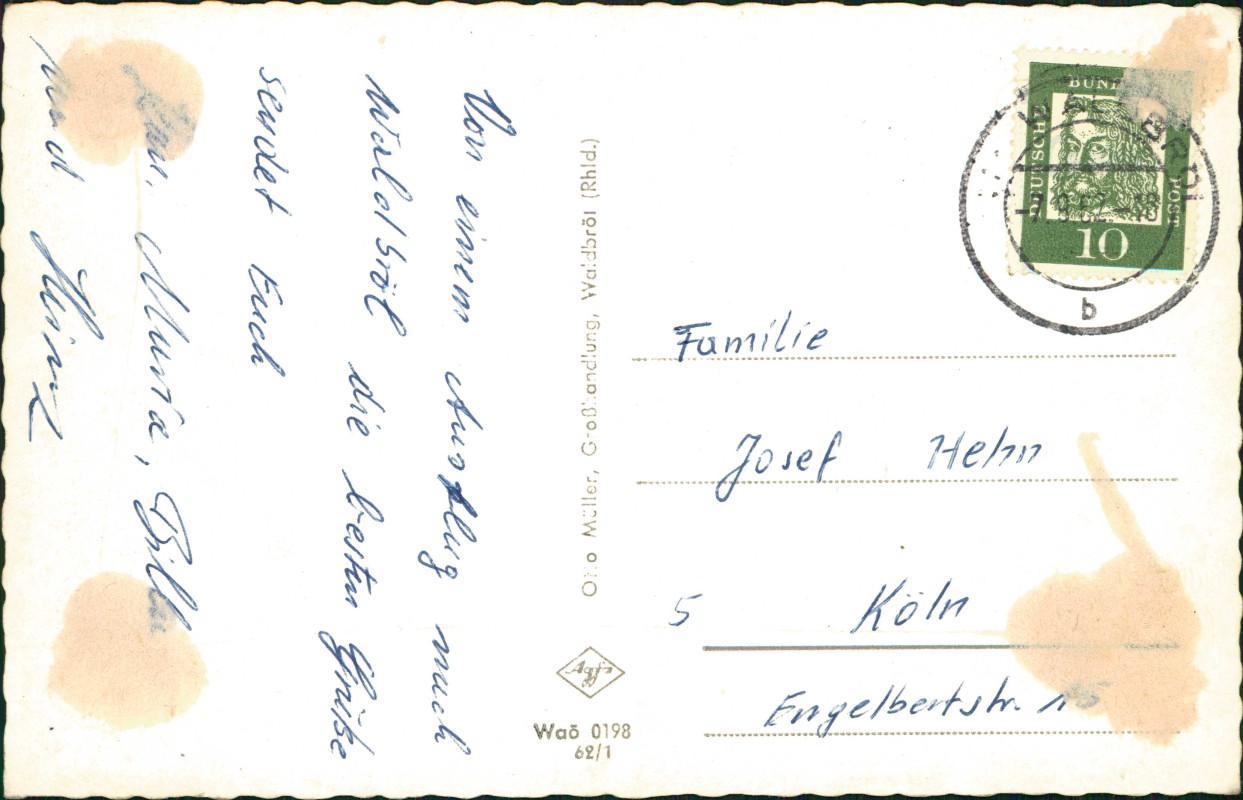 Von einem Ausflug nach
Waldbröl die besten Grüße
sendet Euch
Maria,
und Heinz
Otto Müller, Großhandlung, Waldbröl (Rhld.)
Agfa
Waö 0198
62/1
DEUTSCHE
BUN
POST
10
WALDBRÖL
-7.9.62.-18
b
Familie
Josef Hehn
5 Köln
Engelbertstr.